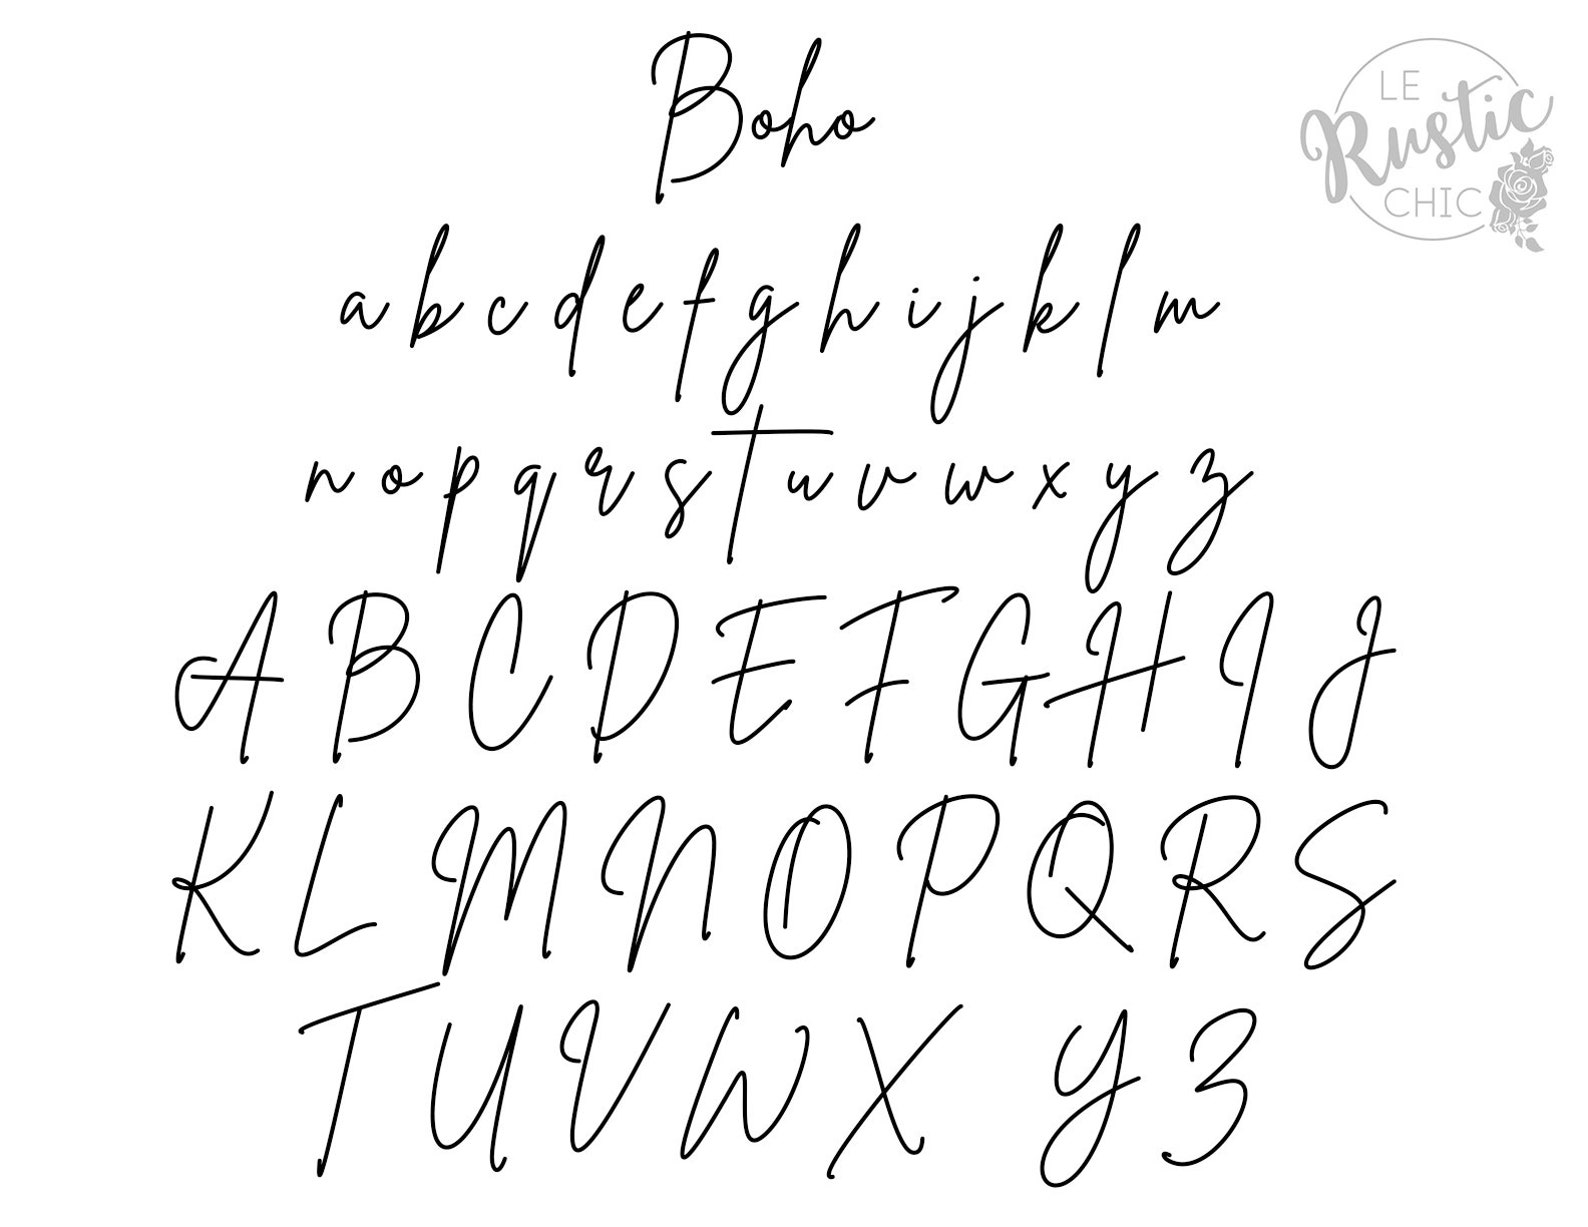 Boho
LE
Rustic
CHIC
a b c d e f g h i j k l m
n o p q r s t u v w x y z
A B C D E F G H I J
K L M N O P Q R S
T U V W X Y Z